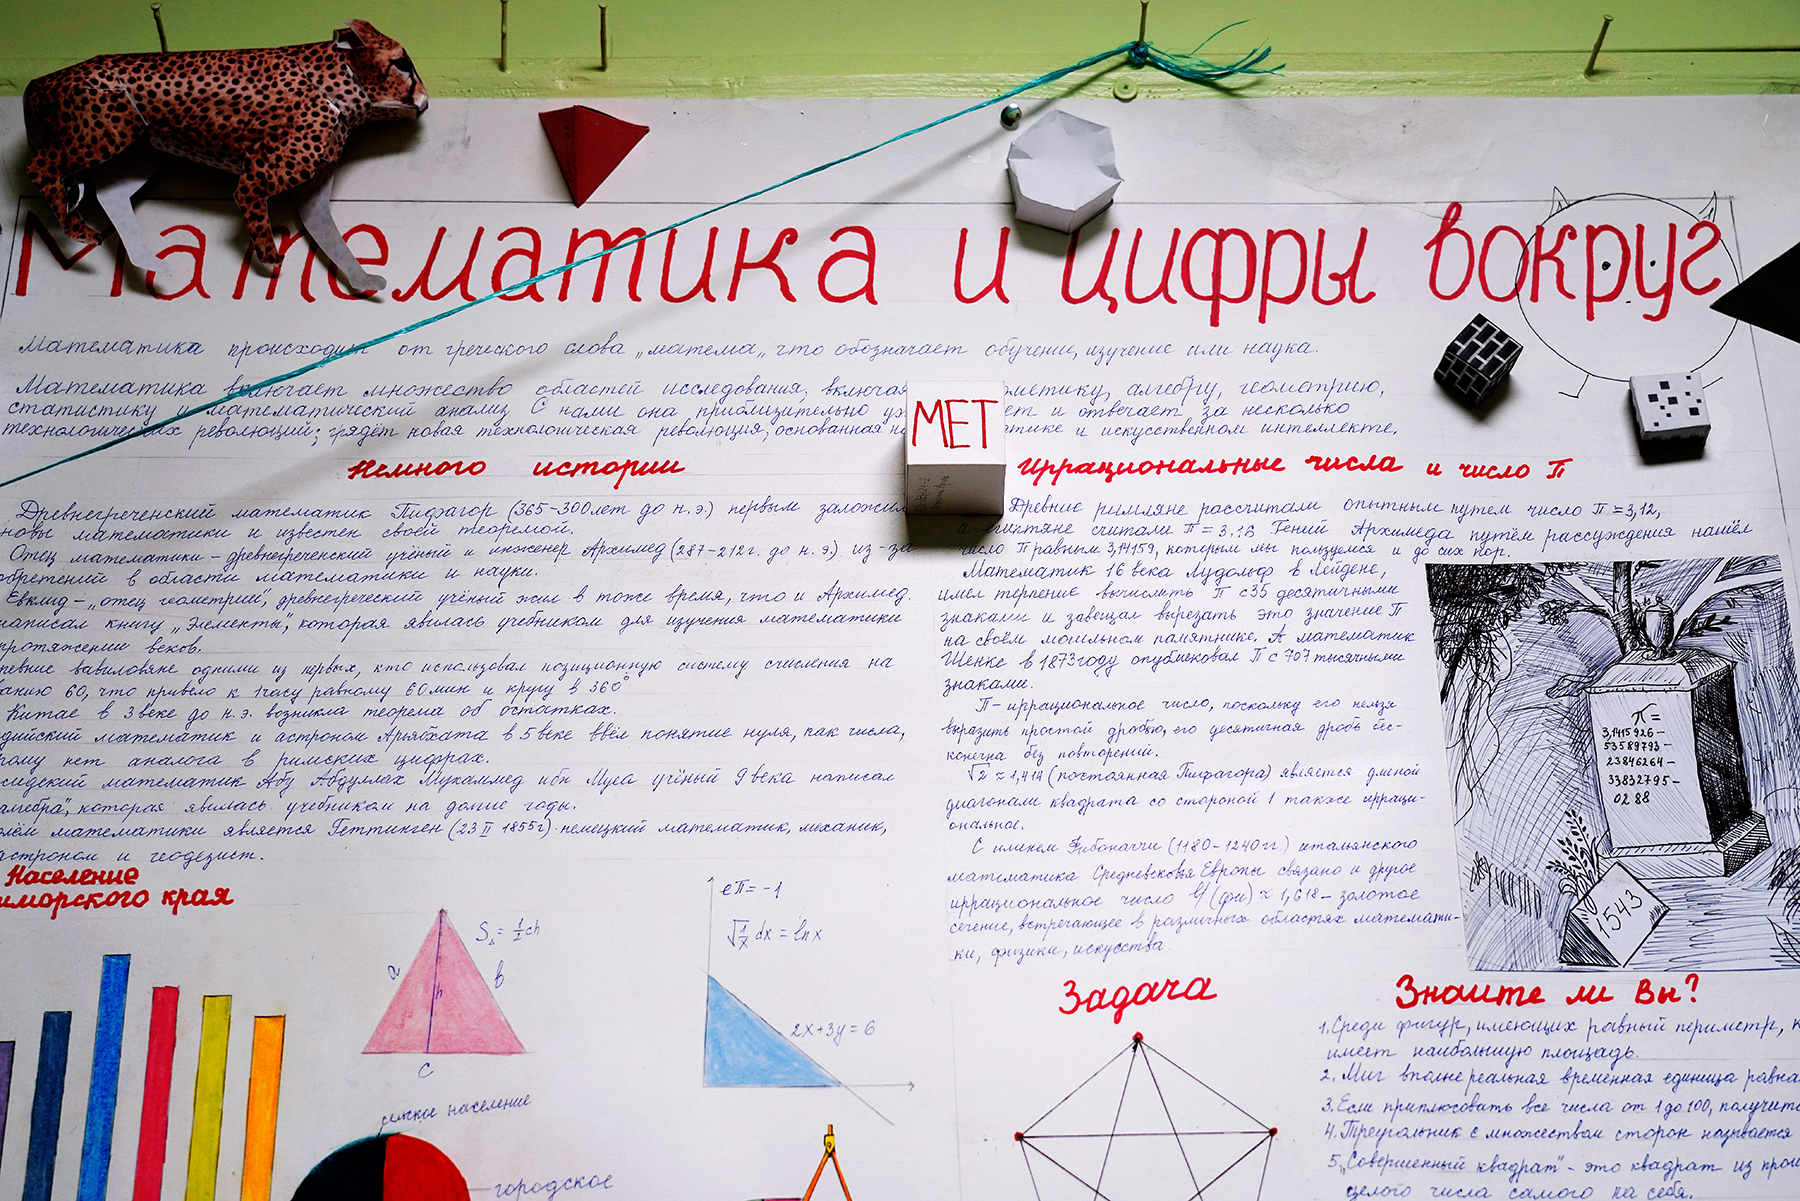 Математика и цифры вокруг
Математика происходит от греческого слова „матема„ что обозначает обучение, изучение или наука.
Математика включает множество областей исследования, включая метику, алгебру, геометрию,
статистику и математический анализ. С нами она приблизительно ет и отвечает за несколько
технологических революций; грядёт новая технологическая революция, основанная на атике и искусственном интеллекте.
МЕТ
Немного истории
Древнегреченский математик Пифагор (365-300 лет до н.э.) первым заложил
новы математики и известен своей теоремой.
Отец математики - древнегреческий учёный и инженер Архимед (287-212 г. до н.э.) из-за
обретений в области математики и науки.
Евклид - „отец геометрии", древнегреческий учёный жил в тоже время, что и Архимед.
написал книгу „Элементы", которая явилась учебником для изучения математики
протяжении веков.
ревние вавилоняне одними из первых, кто использовал позиционную систему счисления на
ванию 60, что привело к 1 часу равному 60 мин и кругу в 360°
Китае в 3 веке до н.э. возникла теорема об остатках.
дийский математик и астроном Арьябхата в 5 веке ввёл понятие нуля, как числа,
рому нет аналога в римских цифрах.
сидский математик Абу Абдуллах Мухаммед ибн Муса учёный 9 века написал
алгебра", которая явилась учебником на долгие годы.
лём математики является Геттинген (23 II 1855 г) немецкий математик, механик,
астроном и геодезист.
Иррациональные числа и число π
Древние римляне рассчитали опытным путем число π = 3,12,
а египтяне считали π = 3,16 Гений Архимеда путём рассуждения нашёл
число π равным 3,14159, которым мы пользуемся и до сих пор.
Математик 16 века Лудольф в Лейдене,
имел терпение вычислить π с 35 десятичными
знаками и завещал вырезать это значение π
на своём могильном памятнике. А математик
Шенке в 1873 году опубликовал π с 707 тысячными
знаками.
π - иррациональное число, поскольку его нельзя
выразить простой дробью, его десятичная дробь бес-
конечна без повторений.
√2 ≈ 1,414 (постоянная Пифагора) является длиной
диагонали квадрата со стороной 1 также ирраци-
ональное.
С именем Фибоначчи (1180-1240 гг) итальянского
математика Средневековья Европы связано и другое
иррациональное число φ (фи) ≈ 1,618 - золотое
сечение, встречающее в различных областях математи-
ки, физики, искусства.
π =
3,1415926-
53589793-
23846264-
33832795-
0288
1543
Население
иморского края
a
h
b
c
S△ = ½ch
eπ = -1
√1/x dx = lnx
2x+3y = 6
сельское население
городское
Задача
Знаите ли Вы?
1. Среди фигур, имеющих равный периметр, к
имеет наибольшую площадь.
2. Миг вполне реальная временная единица равна
3. Если приплюсовать все числа от 1 до 100, получить
4. Треугольник с множеством сторон называется
5. „Совершенный квадрат" - это квадрат из прои
целого числа самого на себя.